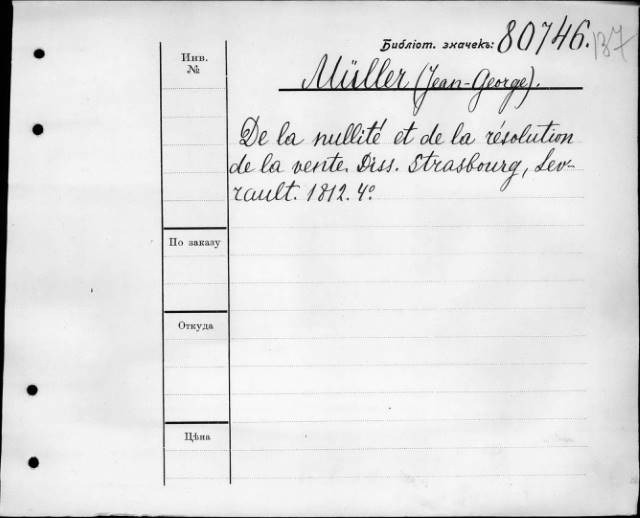 Библіот. значекъ: 80746. 137
Инв. №
Müller (Jean-George).
De la nullité et de la résolution
de la vente. Diss. Strasbourg, Lev-
rault. 1812. 4º
По заказу
Откуда
Цѣна